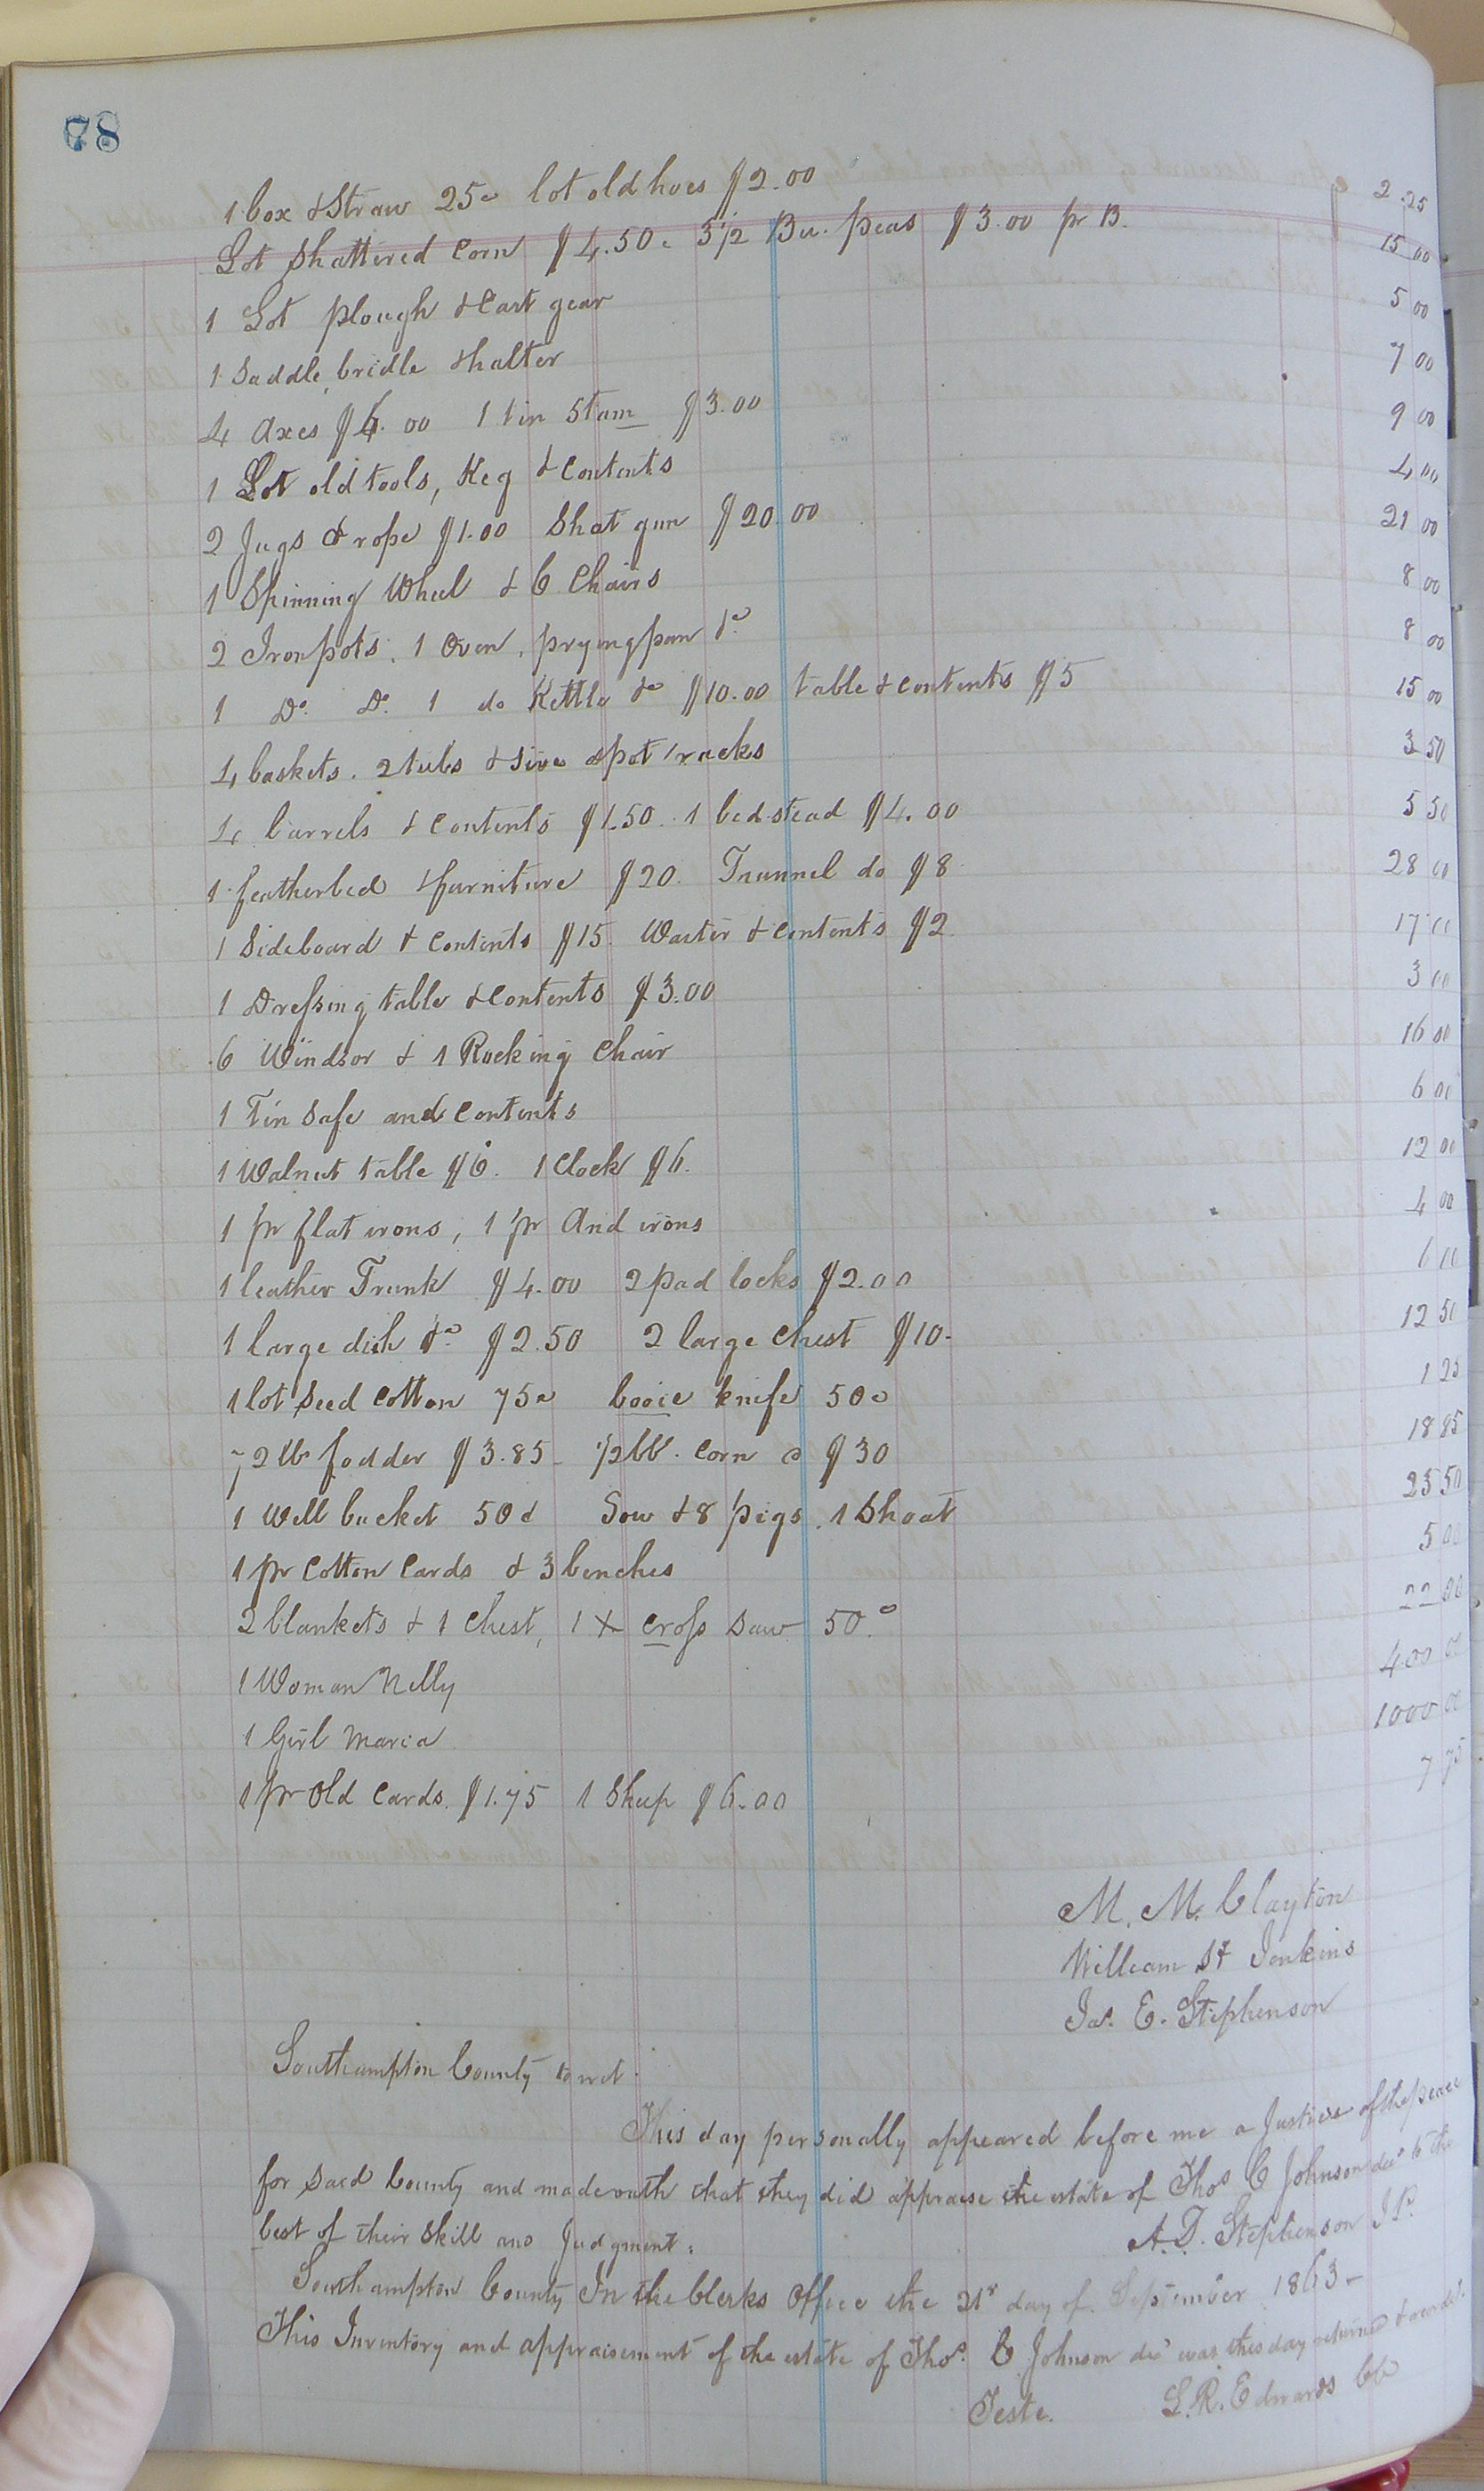 78
1 box & Straw 25c lot old hoes $2.00 2.25
Lot Shattered Corn $4.50c 3½ Bu. peas $3.00 pr B. 15 00
1 Lot plough & Cart gear 5 00
1 Saddle, bridle & halter 7 00
4 Axes $6.00 1 tin Stam $3.00 9 00
1 Lot old tools, Keg & Contents 4 00
2 Jugs & rope $1.00 Shot gun $20.00 21 00
1 Spinning Wheel & 6 Chairs 8 00
2 Iron pots. 1 Oven, pryingpan &c 8 00
1 Do. Do. 1 do Kettle &c $10.00 table & contents $5 15 00
4 baskets. 2 tubs & Sive & pot racks 3 50
4 barrels & Contents $1.50. 1 bedstead $4.00 5 50
1 featherbed & furniture $20. Trunnel do $8 28 00
1 Sideboard & Contents $15. Waiter & Contents $2 17 00
1 Dressing table & Contents $3.00 3 00
6 Windsor & 1 Rocking Chair 16 00
1 Tin Safe and Contents 6 00
1 Walnut table $6. 1 Clock $6. 12 00
1 pr flat irons, 1 pr And irons 4 00
1 leather Trunk $4.00 2 pad locks $2.00 6 00
1 large dish &c $2.50 2 large Chest $10- 12 50
1 lot Seed Cotton 75c booie knife 50c 1 25
72 lb fodder $3.85 - ½ bb. Corn @ $30 18 85
1 Well bucket 50c Sow & 8 pigs. 1 Shoat 25 50
1 pr Cotton Cards & 3 benches 5 00
2 blankets & 1 Chest, 1 X Cross Saw 50c 22 00
1 Woman Nelly 400 00
1 Girl Maria 1000 00
1 pr Old Cards. $1.75 1 Sheep $6.00 7 75
M. M. Clayton
William Jenkins
Jas. E. Stephenson
Southampton County to wit.
This day personally appeared before me a Justice of the peace
for Said County and made oath that they did appraise the estate of Thos C Johnson decd to the
best of their Skill and Judgment.
A. D. Stephenson J.P.
Southampton County In the Clerks Office the 21st day of September 1863 -
This Inventory and appraisement of the estate of Thos. C Johnson decd was this day returned &
Teste. L. R. Edwards CC